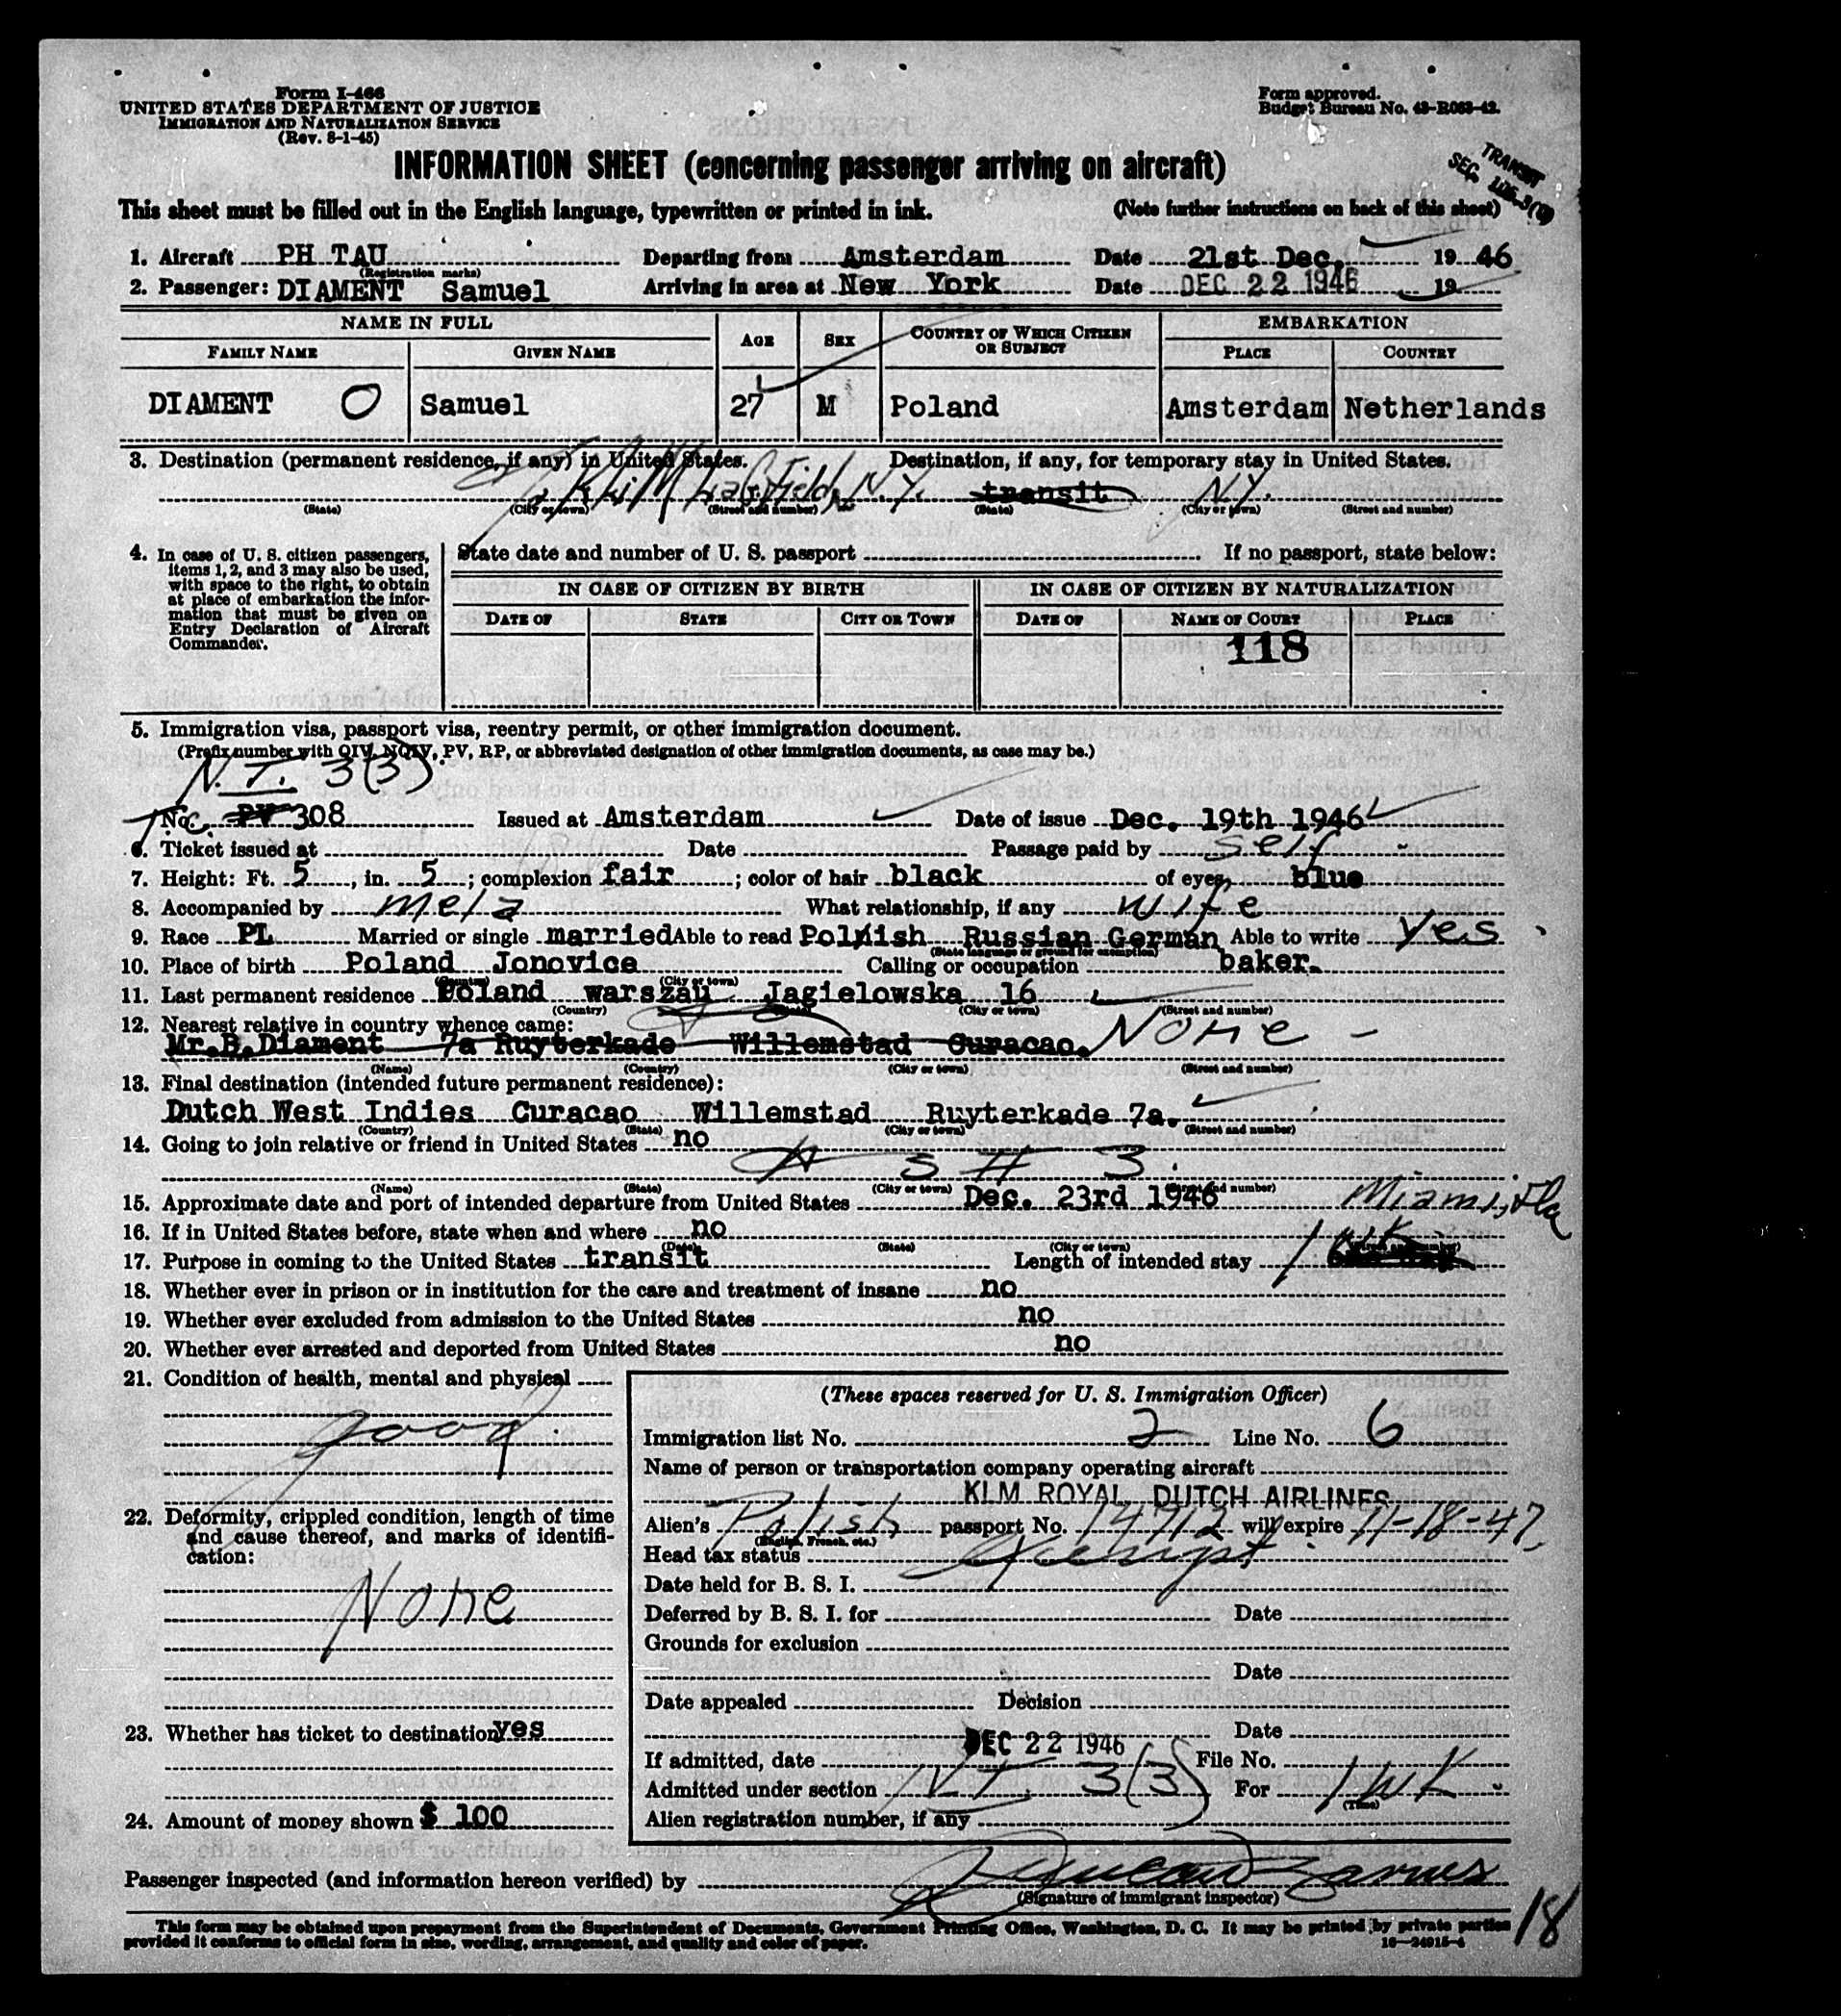 Form I-466
UNITED STATES DEPARTMENT OF JUSTICE
IMMIGRATION AND NATURALIZATION SERVICE
(Rev. 8-1-45)
Form approved.
Budget Bureau No. 43-R063-42.
INFORMATION SHEET (concerning passenger arriving on aircraft)
TRANSIT
SEC.
This sheet must be filled out in the English language, typewritten or printed in ink. (Note further instructions on back of this sheet)
1. Aircraft PH TAU Departing from Amsterdam Date 21st Dec. 19 46
(Registration marks)
2. Passenger: DIAMENT Samuel Arriving in area at New York Date DEC 22 1946 19
NAME IN FULL AGE SEX COUNTRY OF WHICH CITIZEN OR SUBJECT EMBARKATION
FAMILY NAME GIVEN NAME PLACE COUNTRY
DIAMENT O Samuel 27 M Poland Amsterdam Netherlands
3. Destination (permanent residence, if any) in United States. Destination, if any, for temporary stay in United States.
Field, N.Y. transit N.Y.
(State) (City or town) (Street and number) (State) (City or town) (Street and number)
4. In case of U. S. citizen passengers, items 1, 2, and 3 may also be used, with space to the right, to obtain at place of embarkation the information that must be given on Entry Declaration of Aircraft Commander.
State date and number of U. S. passport If no passport, state below:
IN CASE OF CITIZEN BY BIRTH IN CASE OF CITIZEN BY NATURALIZATION
DATE OF STATE CITY OR TOWN DATE OF NAME OF COURT PLACE
118
5. Immigration visa, passport visa, reentry permit, or other immigration document.
(Prefix number with QIV, NQIV, PV, RP, or abbreviated designation of other immigration documents, as case may be.)
N.T. 3(3)
T.C. No. PV 308 Issued at Amsterdam Date of issue Dec. 19th 1946
6. Ticket issued at Date Passage paid by self
7. Height: Ft. 5, in. 5; complexion fair; color of hair black of eyes blue
8. Accompanied by mela What relationship, if any wife
9. Race PL Married or single married Able to read Polnish Russian German Able to write yes
(State language or ground for exemption)
10. Place of birth Poland Jonovice Calling or occupation baker.
(Country) (City or town)
11. Last permanent residence Poland warszau Jagielowska 16
(Country) (State) (City or town) (Street and number)
12. Nearest relative in country whence came:
Mr.B.Diament 7a Ruyterkade Willemstad Curacao. None -
(Name) (Country) (City or town) (Street and number)
13. Final destination (intended future permanent residence):
Dutch West Indies Curacao Willemstad Ruyterkade 7a.
(Country) (State) (City or town) (Street and number)
14. Going to join relative or friend in United States no
# 3.
(Name) (State) (City or town) (Street and number)
15. Approximate date and port of intended departure from United States Dec. 23rd 1946 Miami, Fla
16. If in United States before, state when and where no
(Date) (State) (City or town) (Street and number)
17. Purpose in coming to the United States transit Length of intended stay 1 wk
18. Whether ever in prison or in institution for the care and treatment of insane no
19. Whether ever excluded from admission to the United States no
20. Whether ever arrested and deported from United States no
21. Condition of health, mental and physical
good.
22. Deformity, crippled condition, length of time and cause thereof, and marks of identification:
None
23. Whether has ticket to destination yes
24. Amount of money shown $ 100
(These spaces reserved for U. S. Immigration Officer)
Immigration list No. 2 Line No. 6
Name of person or transportation company operating aircraft
KLM ROYAL DUTCH AIRLINES
Alien's Polish passport No. 14712 will expire 11-18-47
(English, French, etc.)
Head tax status Exempt
Date held for B. S. I.
Deferred by B. S. I. for Date
Grounds for exclusion
Date
Date appealed Decision
Date
If admitted, date DEC 22 1946 File No.
Admitted under section N.T. 3(3) For 1 WK
(Time)
Alien registration number, if any
Passenger inspected (and information hereon verified) by
(Signature of immigrant inspector)
This form may be obtained upon prepayment from the Superintendent of Documents, Government Printing Office, Washington, D. C. It may be printed by private parties
provided it conforms to official form in size, wording, arrangement, and quality and color of paper. 16—24915-4
18